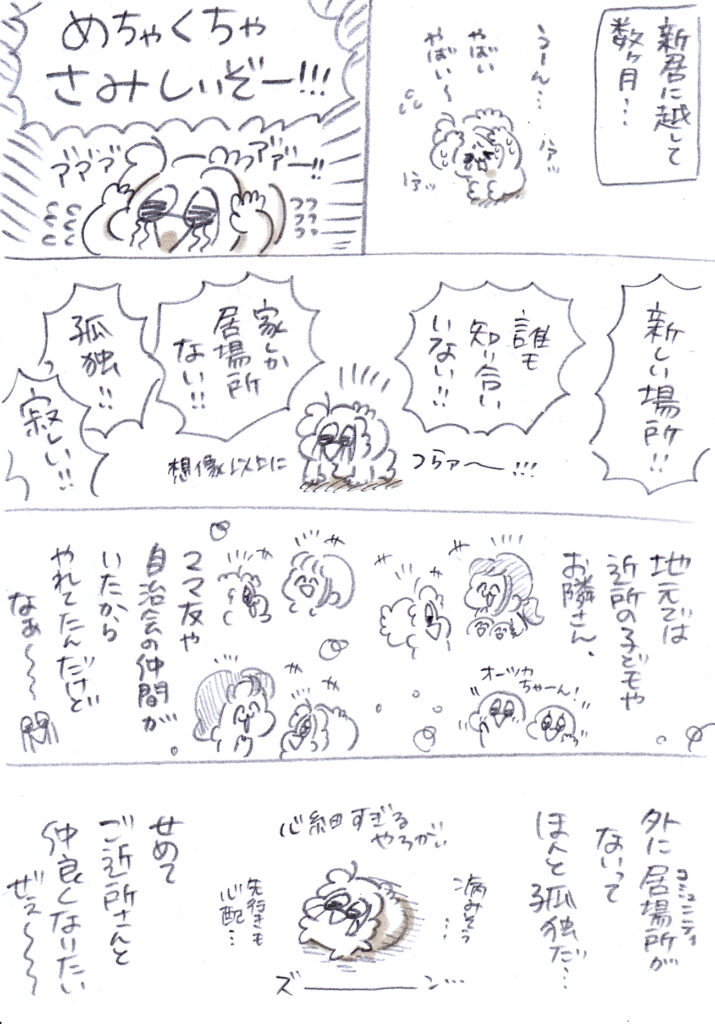 新居に越して
数ヶ月…
うーん…
やばい
やばい〜
ハァッ
ハァッ
めちゃくちゃ
さみしいぞー!!!
アアアア
アアァー!!
新しい場所!!
誰も
知り合い
いない!!
家しか
居場所
ない!!
孤独!!
寂しい!!
想像以上に
つらァ〜!!!
地元では
近所の子どもや
お隣さん、
オーツカ
ちゃーん!
ママ友や
自治会の仲間が
いたから
やれてたんだけど
なぁ〜〜
外に居場所が
コミュニティ
ないって
ほんと孤独だ…
病みそう
…
心細すぎる
やろがい
先行きも
心配…
ズーーーン…
せめて
ご近所さんと
仲良くなりたい
ぜぇ〜〜〜